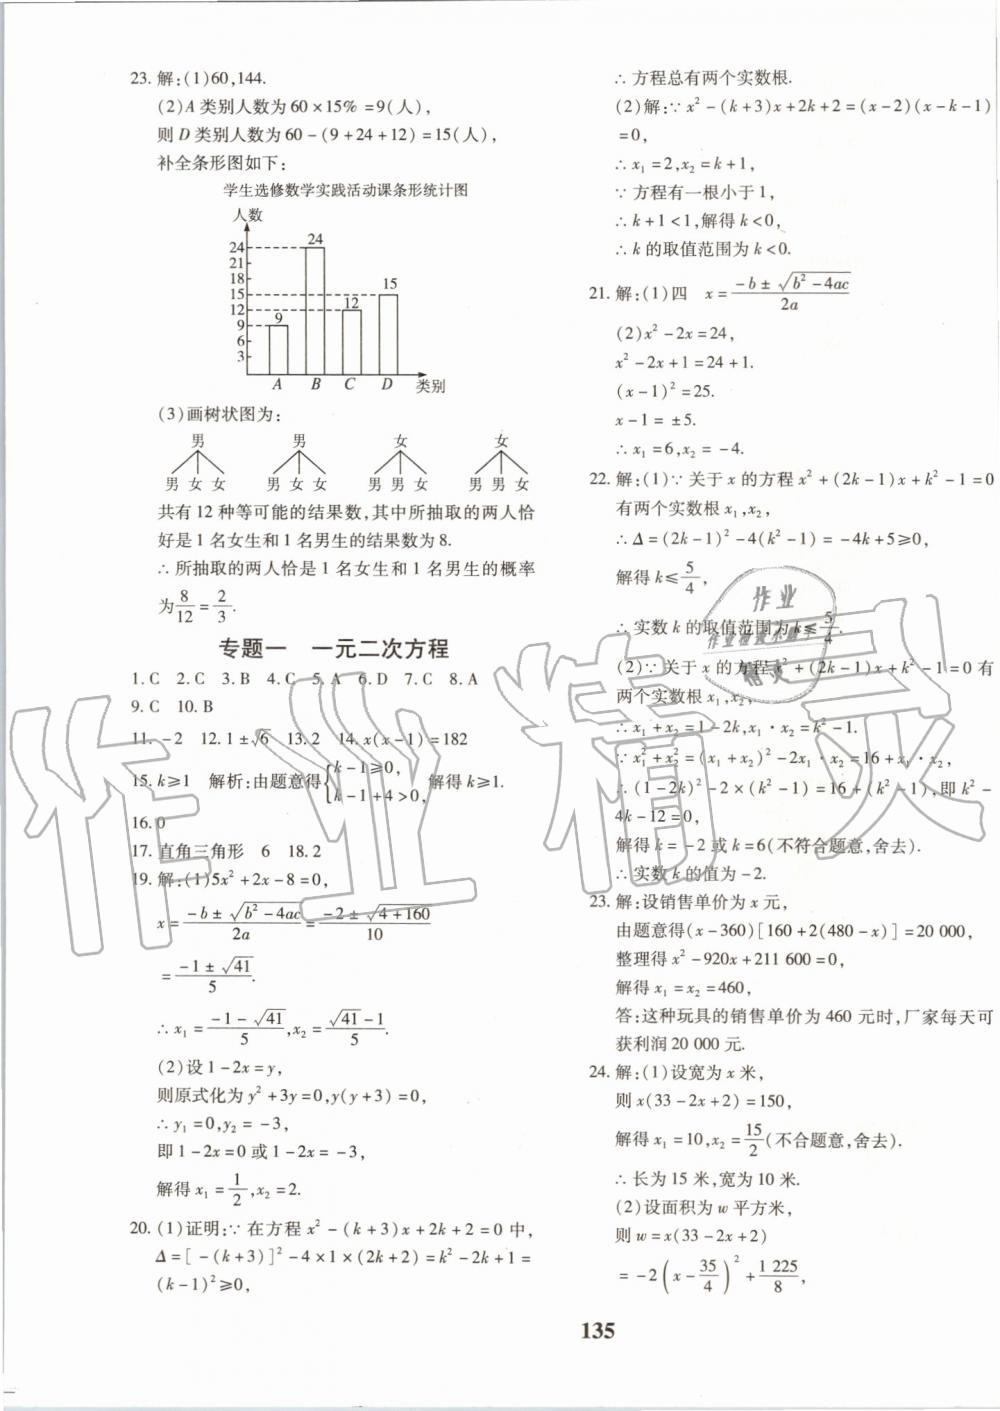 23. 解:(1)60,144.
(2)A 类别人数为 60×15% =9(人),
则 D 类别人数为 60-(9+24+12)=15(人),
补全条形图如下:
学生选修数学实践活动课条形统计图
人数
24
21
18
15
12
9
6
3
9
24
12
15
A B C D 类别
(3)画树状图为:
男 男 女 女
男 女 女 男 女 女 男 男 女 男 男 女
共有 12 种等可能的结果数,其中所抽取的两人恰
好是 1 名女生和 1 名男生的结果数为 8.
∴ 所抽取的两人恰是 1 名女生和 1 名男生的概率
为 8/12 = 2/3.
专题一 一元二次方程
1. C 2. C 3. B 4. C 5. A 6. D 7. C 8. A
9. C 10. B
11. -2 12. 1±√6 13. 2 14. x(x-1)=182
15. k≥1 解析:由题意得{k-1≥0, k-1+4>0, 解得 k≥1.
16. 0
17. 直角三角形 6 18. 2
19. 解:(1)5x²+2x-8=0,
x=(-b±√(b²-4ac))/2a=(-2±√(4+160))/10
=(-1±√41)/5.
∴ x₁=(-1-√41)/5, x₂=(√41-1)/5.
(2)设 1-2x=y,
则原式化为 y²+3y=0,y(y+3)=0,
∴ y₁=0,y₂=-3,
即 1-2x=0 或 1-2x=-3,
解得 x₁=1/2,x₂=2.
20. (1)证明:∵ 在方程 x²-(k+3)x+2k+2=0 中,
Δ=[-(k+3)]²-4×1×(2k+2)=k²-2k+1=
(k-1)²≥0,
∴ 方程总有两个实数根.
(2)解:∵ x²-(k+3)x+2k+2=(x-2)(x-k-1)
=0,
∴ x₁=2,x₂=k+1,
∵ 方程有一根小于 1,
∴ k+1<1,解得 k<0,
∴ k 的取值范围为 k<0.
21. 解:(1)四 x=(-b±√(b²-4ac))/2a
(2)x²-2x=24,
x²-2x+1=24+1.
(x-1)²=25.
x-1=±5.
∴ x₁=6,x₂=-4.
22. 解:(1)∵ 关于 x 的方程 x²+(2k-1)x+k²-1=0
有两个实数根 x₁,x₂,
∴ Δ=(2k-1)²-4(k²-1)=-4k+5≥0,
解得 k≤5/4,
∴ 实数 k 的取值范围为 k≤5/4.
(2)∵ 关于 x 的方程 x²+(2k-1)x+k²-1=0 有
两个实数根 x₁,x₂,
∴ x₁+x₂=1-2k,x₁·x₂=k²-1.
∵ x₁²+x₂²=(x₁+x₂)²-2x₁·x₂=16+x₁·x₂,
∴ (1-2k)²-2×(k²-1)=16+(k²-1),即 k²-
4k-12=0,
解得 k=-2 或 k=6(不符合题意,舍去).
∴ 实数 k 的值为 -2.
23. 解:设销售单价为 x 元,
由题意得(x-360)[160+2(480-x)]=20 000,
整理得 x²-920x+211 600=0,
解得 x₁=x₂=460,
答:这种玩具的销售单价为 460 元时,厂家每天可
获利润 20 000 元.
24. 解:(1)设宽为 x 米,
则 x(33-2x+2)=150,
解得 x₁=10,x₂=15/2(不合题意,舍去).
∴ 长为 15 米,宽为 10 米.
(2)设面积为 w 平方米,
则 w=x(33-2x+2)
=-2(x-35/4)²+1 225/8,
135
作业精灵
作业
精灵